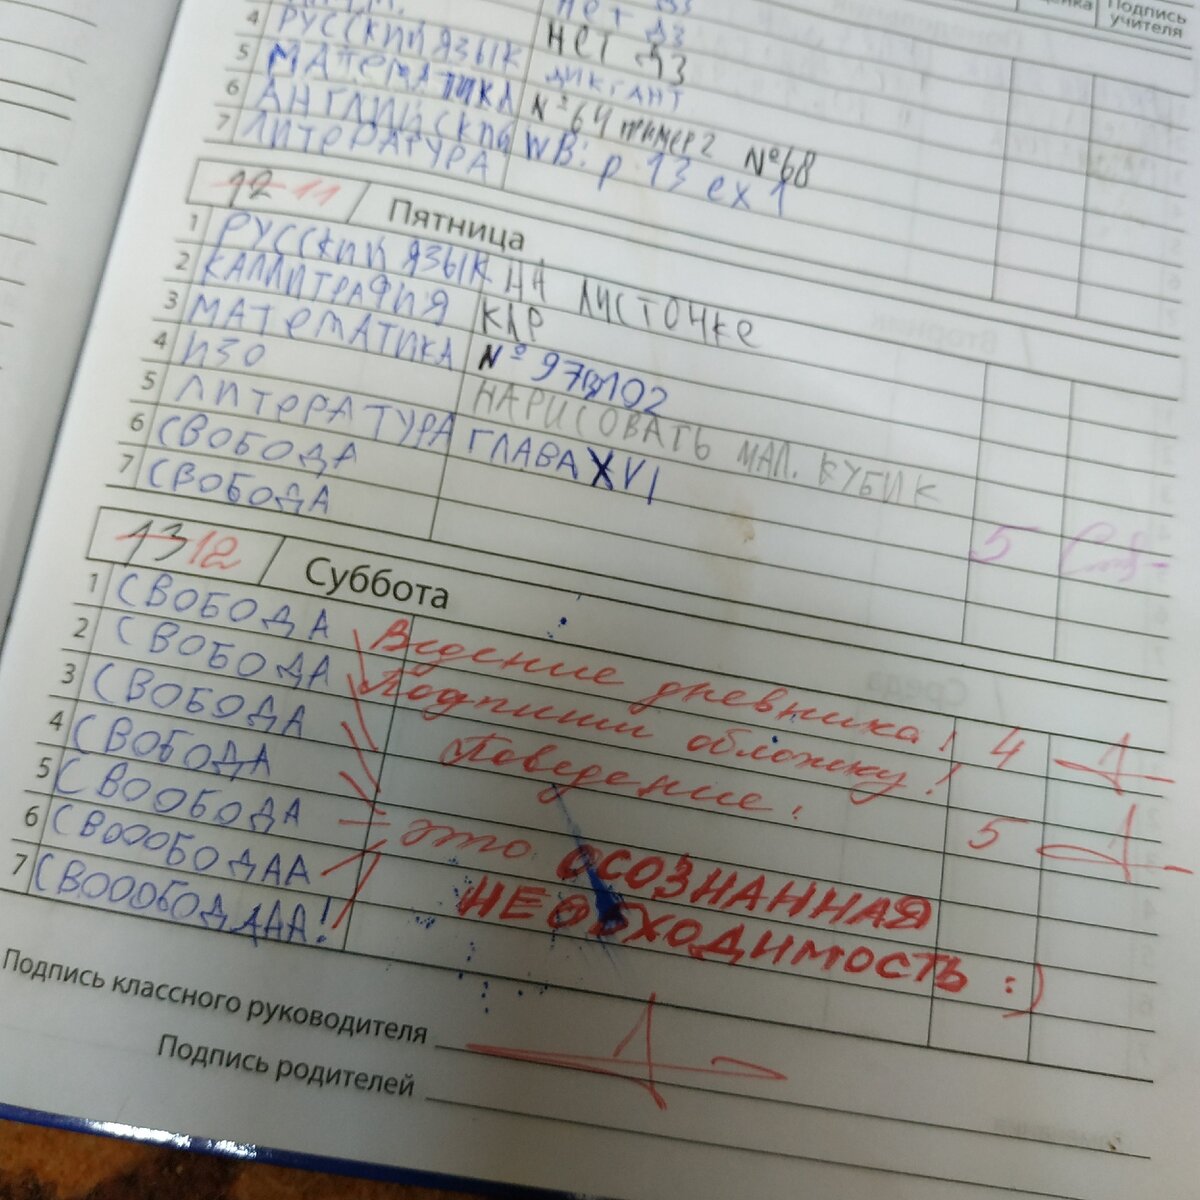 Подпись учителя
НЕТ ДЗ
4 РУССКИЙ ЯЗЫК НЕТ ДЗ
5 МАТЕМАТИКА ДИКТАНТ
6 АНГЛИЙСКИЙ №64 пример 2 №68
7 ЛИТЕРАТУРА WB: p 13 ex 1
12 11 Пятница
1 РУССКИЙ ЯЗЫК НА ЛИСТОЧКЕ
2 КАЛЛИГРАФИЯ КЛР
3 МАТЕМАТИКА № 97 102
4 ИЗО НАРИСОВАТЬ МАЛ. КУБИК
5 ЛИТЕРАТУРА ГЛАВА XVI
6 СВОБОДА 5
7 СВОБОДА
13 12 Суббота
1 СВОБОДА Ведение дневника! 4
2 СВОБОДА Подпиши обложку!
3 СВОБОДА Поведение. 5
4 СВОБОДА
5 СВООБОДА - это ОСОЗНАННАЯ
6 СВОООБОДАА НЕОБХОДИМОСТЬ :)
7 СВОООБОДААА!
Подпись классного руководителя
Подпись родителей